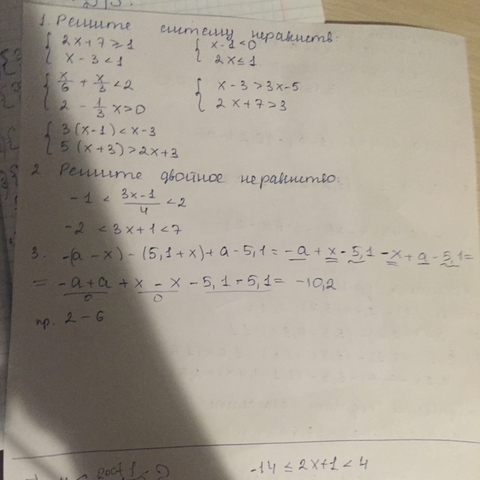 1. Решите систему неравенств:
{ 2x+7≥1 { x-1<0
{ x-3<1 { 2x≤1
{ x/6 + x/3 <2 { x-3>3x-5
{ 2 - 1/3 x>0 { 2x+7>3
{ 3(x-1)<x-3
{ 5(x+3)>2x+3
2. Решите двойное неравинство:
-1 < (3x-1)/4 <2
-2 <3x+1 <7
3. -(a-x)-(5,1+x)+a-5,1=-a+x-5,1-x+a-5,1=
= -a+a+x-x-5,1-5,1= -10,2
0 0
пр. 2-6
-14≤2x+1<4